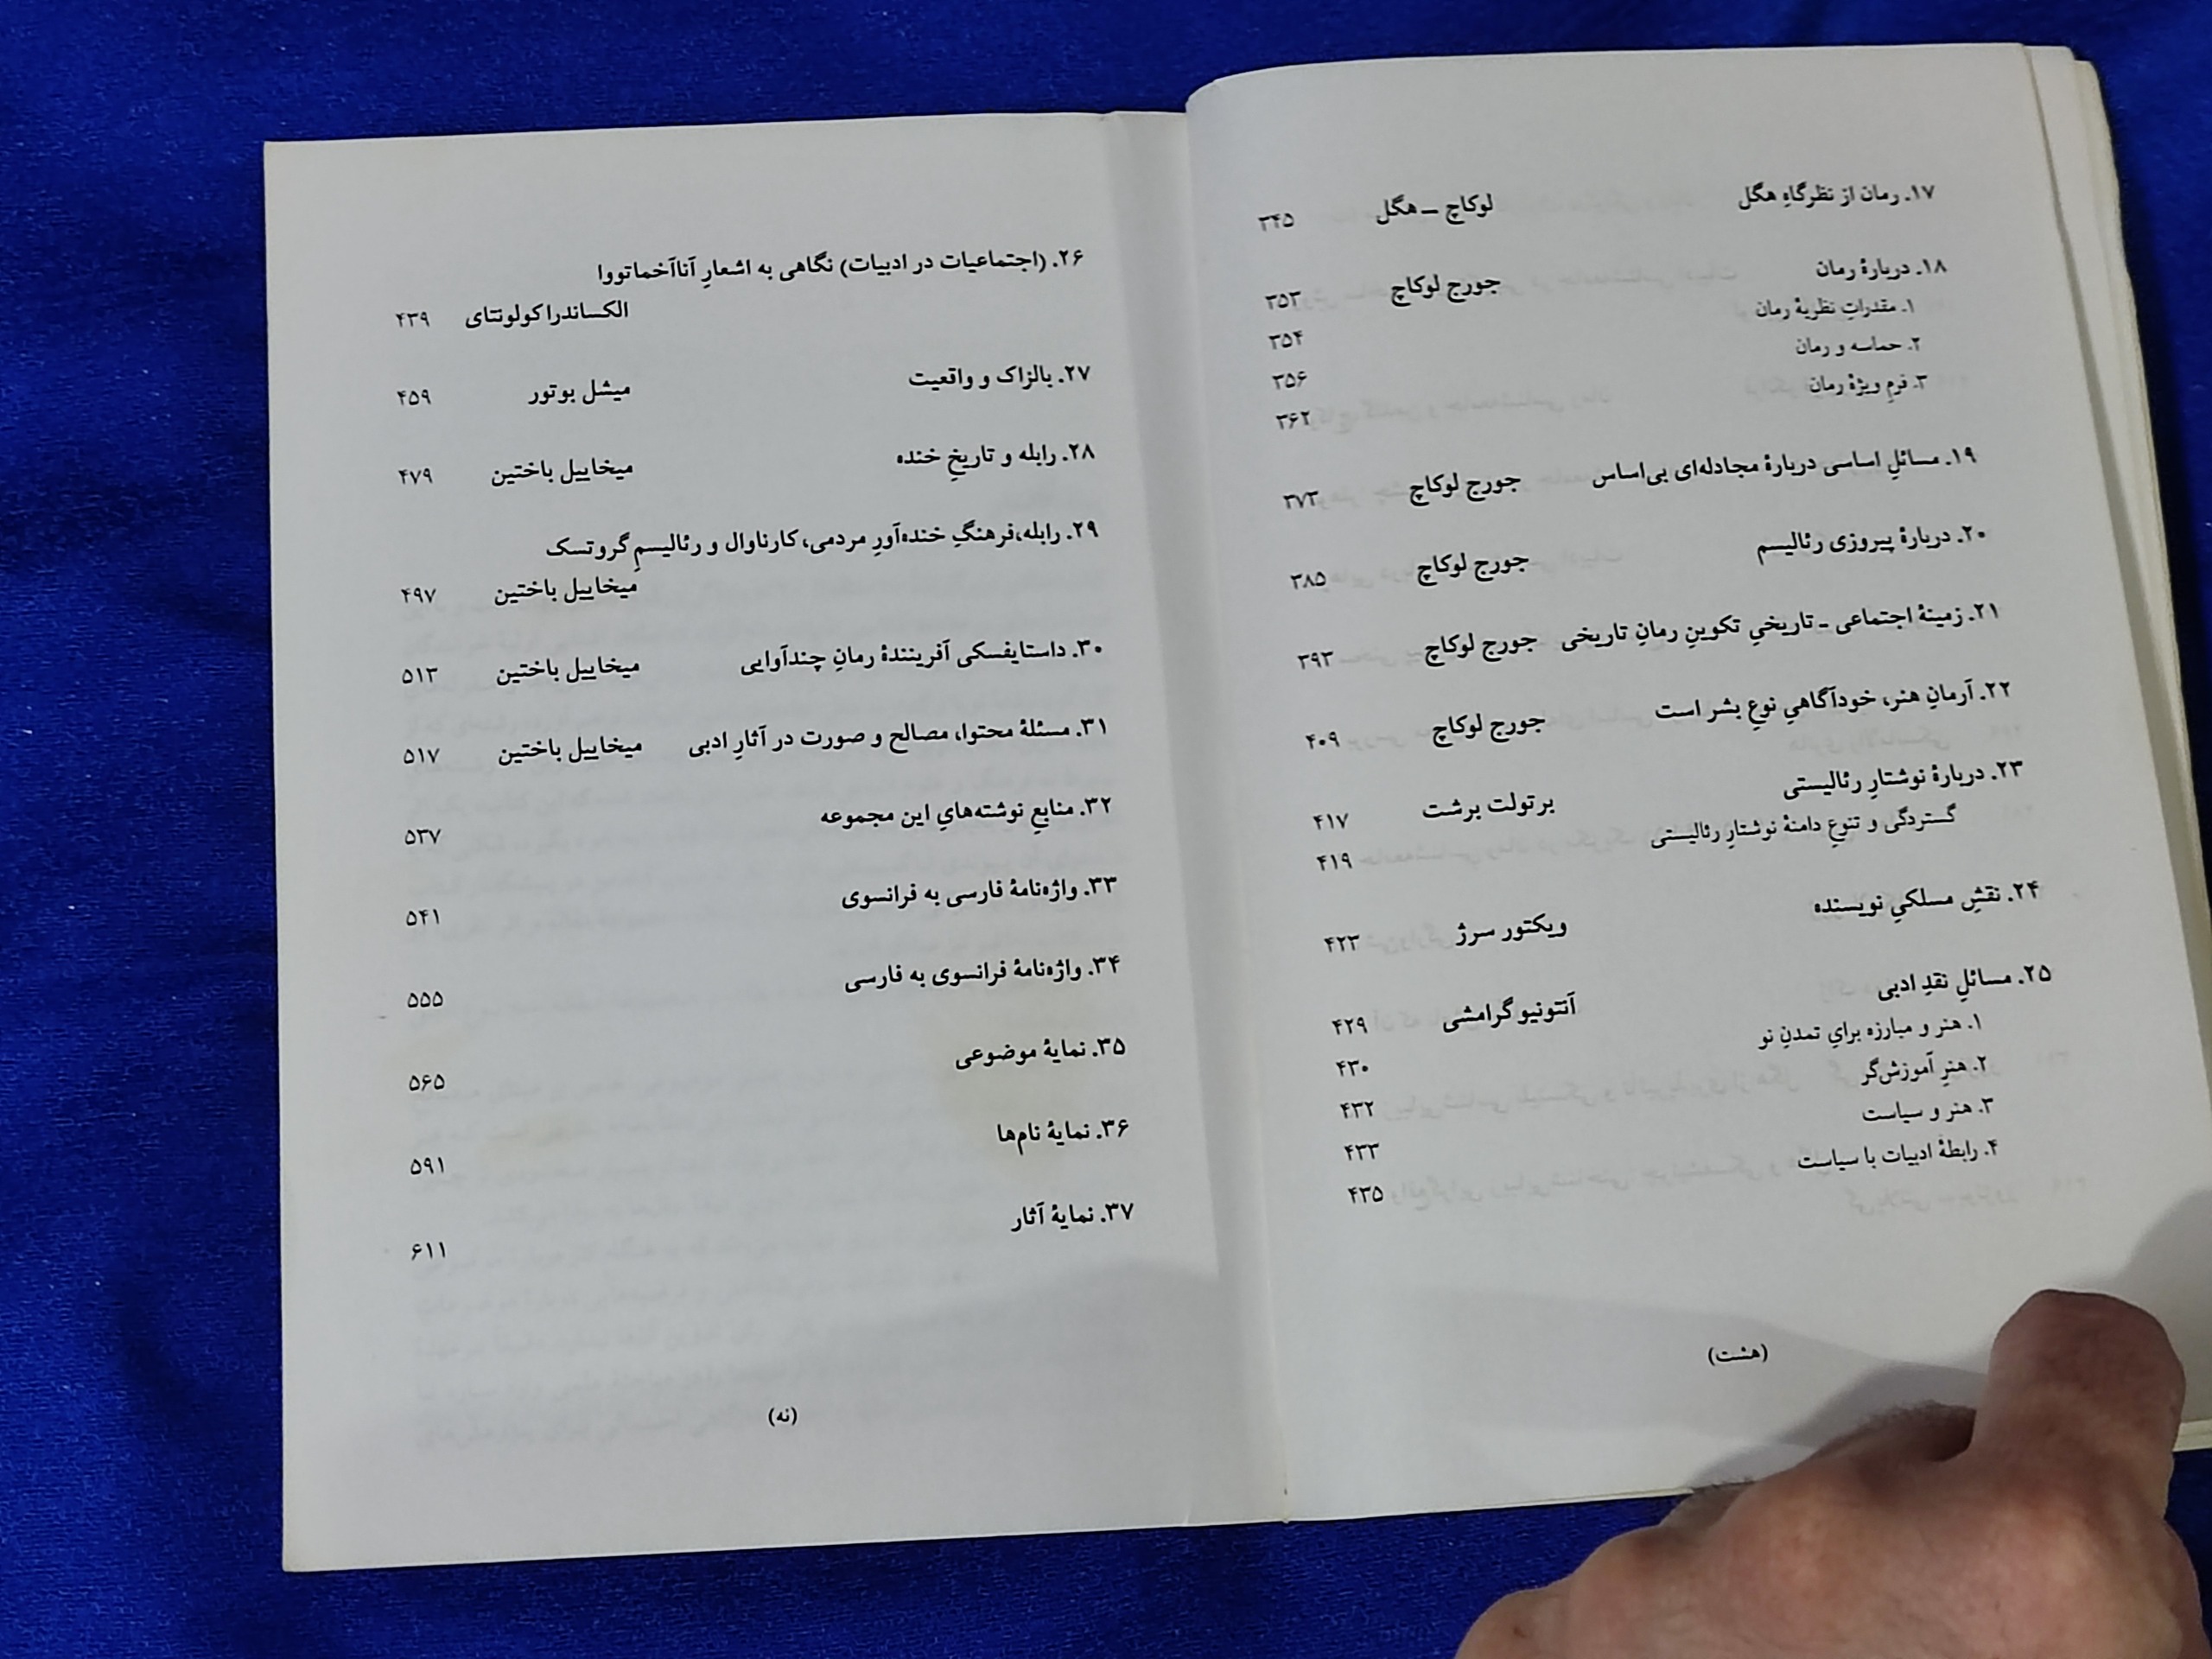 ۱۷. رمان از نظرگاهِ هگل لوکاچ – هگل ۳۴۵
۱۸. دربارهٔ رمان جورج لوکاچ ۳۵۳
۱. مقدراتِ نظریهٔ رمان ۳۵۴
۲. حماسه و رمان ۳۵۶
۳. فرمِ ویژهٔ رمان ۳۶۲
۱۹. مسائلِ اساسی دربارهٔ مجادله‌ای بی‌اساس جورج لوکاچ ۳۷۳
۲۰. دربارهٔ پیروزی رئالیسم جورج لوکاچ ۳۸۵
۲۱. زمینهٔ اجتماعی - تاریخیِ تکوینِ رمانِ تاریخی جورج لوکاچ ۳۹۳
۲۲. آرمانِ هنر، خودآگاهیِ نوعِ بشر است جورج لوکاچ ۴۰۹
۲۳. دربارهٔ نوشتارِ رئالیستی برتولت برشت ۴۱۷
گستردگی و تنوعِ دامنهٔ نوشتارِ رئالیستی ۴۱۹
۲۴. نقشِ مسلکیِ نویسنده ویکتور سرژ ۴۲۳
۲۵. مسائلِ نقدِ ادبی آنتونیو گرامشی ۴۲۹
۱. هنر و مبارزه برایِ تمدنِ نو ۴۳۰
۲. هنرِ آموزش‌گر ۴۳۲
۳. هنر و سیاست ۴۳۳
۴. رابطهٔ ادبیات با سیاست ۴۳۵
(هشت)
۲۶. (اجتماعیات در ادبیات) نگاهی به اشعارِ آناآخماتووا
الکساندرا کولونتای ۴۳۹
۲۷. بالزاک و واقعیت میشل بوتور ۴۵۹
۲۸. رابله و تاریخِ خنده میخاییل باختین ۴۷۹
۲۹. رابله،فرهنگِ خنده‌آورِ مردمی، کارناوال و رئالیسمِ گروتسک
میخاییل باختین ۴۹۷
۳۰. داستایفسکی آفرینندهٔ رمانِ چندآوایی میخاییل باختین ۵۱۳
۳۱. مسئلهٔ محتوا، مصالح و صورت در آثارِ ادبی میخاییل باختین ۵۱۷
۳۲. منابعِ نوشته‌هایِ این مجموعه ۵۳۷
۳۳. واژه‌نامهٔ فارسی به فرانسوی ۵۴۱
۳۴. واژه‌نامهٔ فرانسوی به فارسی ۵۵۵
۳۵. نمایهٔ موضوعی ۵۶۵
۳۶. نمایهٔ نام‌ها ۵۹۱
۳۷. نمایهٔ آثار ۶۱۱
(نه)